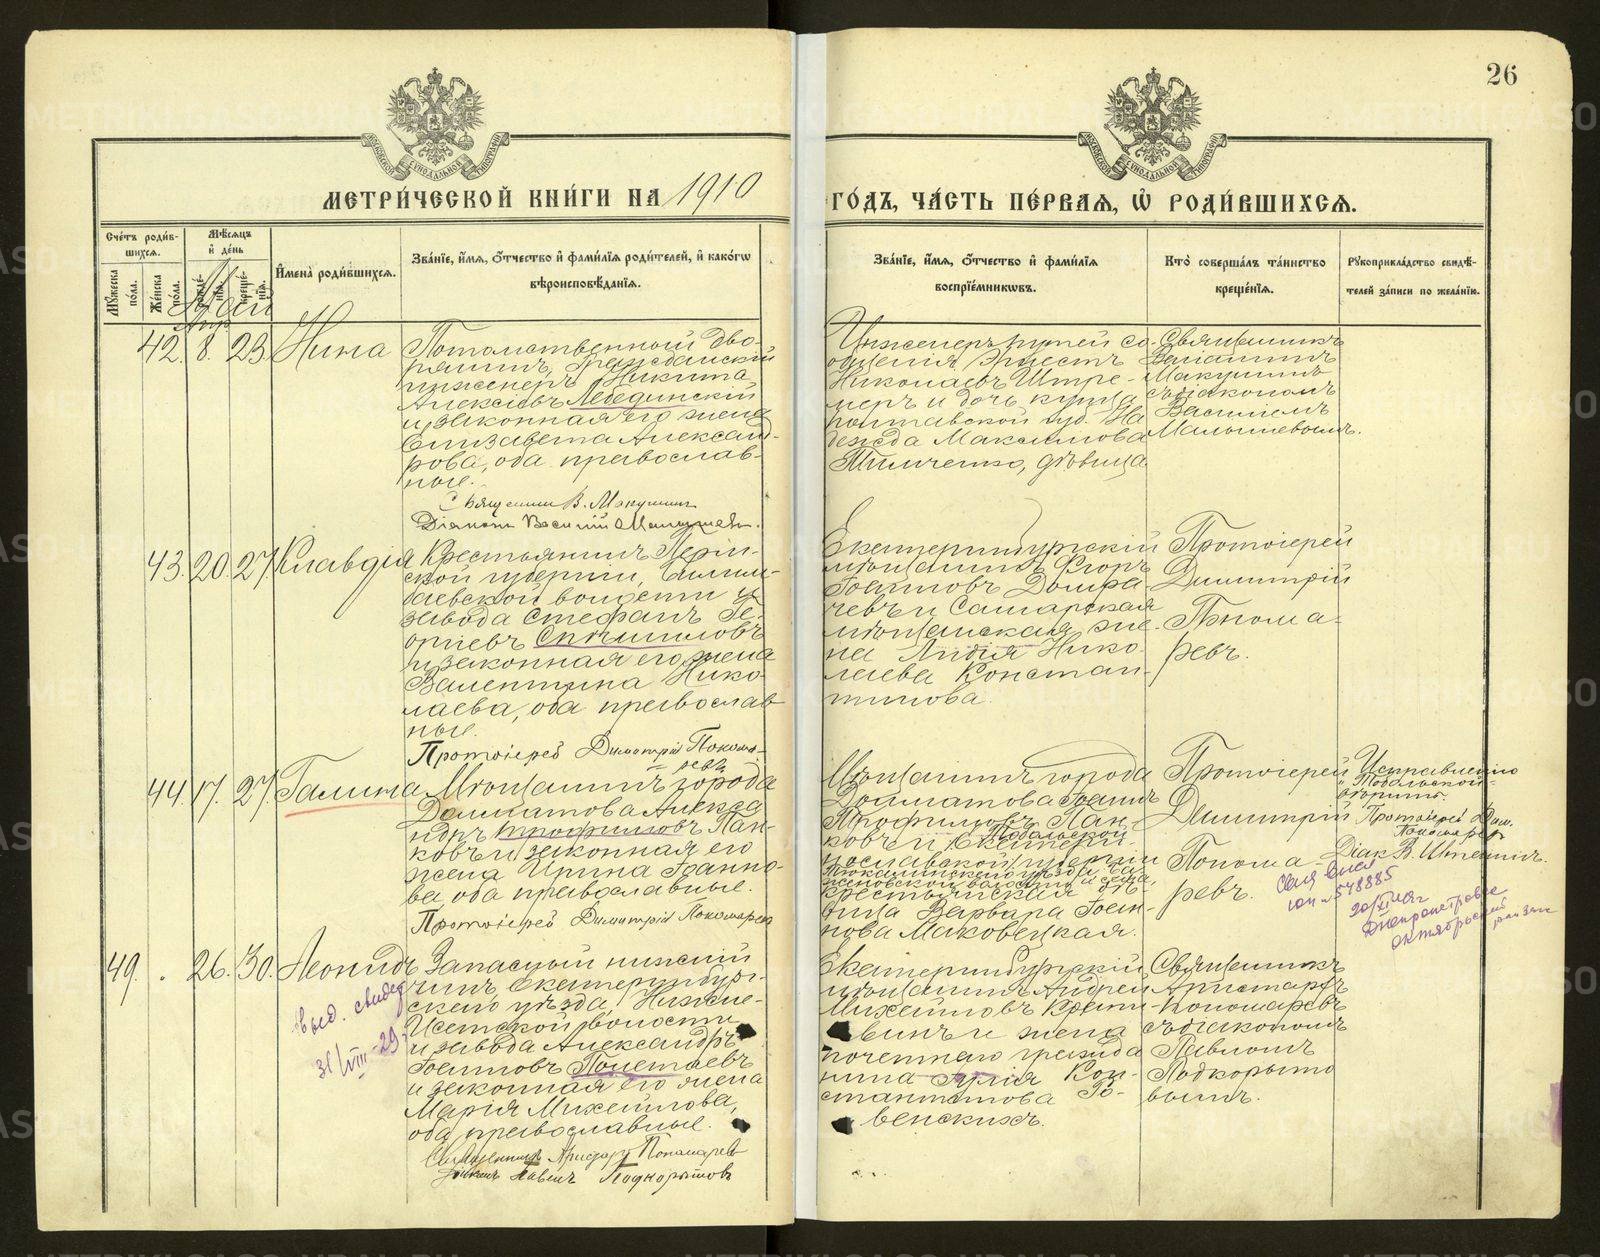 26
МОСКОВСКОЙ СѴНОДАЛЬНОЙ ТИПОГРАФІИ
МОСКОВСКОЙ СѴНОДАЛЬНОЙ ТИПОГРАФІИ
МЕТРИ́ЧЕСКОЙ КНИ́ГИ НА 1910
ГО́ДЪ, ЧА́СТЬ ПЕ́РВАЯ, Ѡ҆ РОДИ́ВШИХСЯ.
Сче́тъ роди́в-
шихся.
Му́жеска по́ла.
Же́нска по́ла.
Мѣ́сяцъ
и҆ де́нь
рожде́-нїя.
креще́-нїя.
И҆мена̀ роди́вшихся.
Зва́нїе, и҆́мя, ѻ҆́тчество и҆ фами́лїя роди́телей, и҆ како́гѡ
вѣроисповѣ́данїя.
Зва́нїе, и҆́мя, ѻ҆́тчество и҆ фами́лїя
воспрїе́мникѡвъ.
Кто̀ соверша́лъ та́инство
креще́нїя.
Рукоприкла́дство свидѣ́-
телей за́писи по жела́нїю.
Май
Апр.
42. 8. 23. Нина
Потомственный дво-
рянинъ, Гражданскій
инженеръ Никита
Алексѣевъ Лебединскій
и законная его жена
Елизавета Александ-
рова, оба православ-
ные.
Священникъ В. Макушинъ
Діаконъ Василій Малышевъ.
Инженеръ путей со-
общенія Эрнестъ
Николаевъ Штре-
меръ и дочь купца
полтавской губ. На
дежда Максимова
Тимченко, дѣвица
Священникъ
Веніаминъ
Макушинъ
съ діакономъ
Василіемъ
Малышевымъ.
43. 20. 27. Клавдія
Крестьянинъ Перм-
ской губерніи, Билим-
баевской волости и
завода Стефанъ Ге-
оргіевъ
и законная его жена
Валентина Нико-
лаева, оба православ
ные.
Протоіерей Димитрій Понома-
ревъ
Екатеринбургскій
мѣщанинъ Егоръ
Іоанновъ Домра-
чевъ и Самарская
мѣщанская же-
на Лидія Нико-
лаева Констан-
тинова.
Протоіерей
Димитрій
Понома-
ревъ.
44. 17. 27. Галина
Мѣщанинъ города
Долматова Алекса
ндръ Трофимовъ Пан-
ковъ и законная его
жена Ирина Іоанно-
ва, оба православные.
Протоіерей Димитрій Пономаревъ
Мѣщанинъ города
Долматова Іоаннъ
Трофимовъ Пан-
ковъ и Екатери-
Тобольской
нославской губерніи
Тюкалинскаго уѣзда
волости и села,
крестьянская дѣ-
вица Варвара Іоан-
нова Маковецкая.
Протоіерей
Димитрій
Понома-
ревъ.
Исправленію
Тобольской
вѣрить.
Протоіерей Дим.
Пономарев
Діак. В.
№ 548885
Днепропетровске
Октябрьский
49. 26. 30. Леонидъ
выд. свидет
31/VIII-29 г
Запасный нижній
чинъ Екатеринбург-
скаго уѣзда, Нижне-
Исетской волости
и завода Александръ
Іоанновъ
и законная его жена
Марія Михеилова,
оба православные.
Священникъ Аристархъ Пономаревъ
Діаконъ Павелъ Подкорытовъ
Екатеринбургскій
мѣщанинъ Андрей
Михеиловъ
и жена
почетнаго гражда
нина Юлія Кон-
стантинова
Священникъ
Аристархъ
Пономаревъ
съ діакономъ
Павломъ
Подкорыто
вымъ.